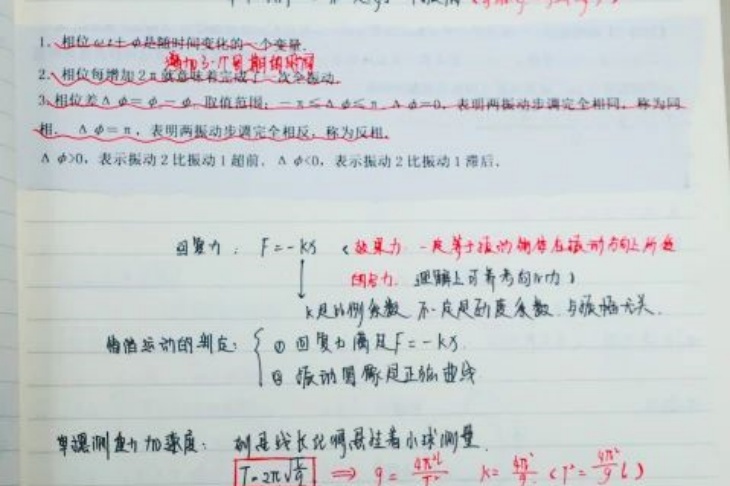 1、相位ωt+φ是随时间变化的一个变量.
2、相位每增加2π就意味着完成了一次全振动.
3、相位差Δφ=φ₂-φ₁取值范围：-π≤Δφ≤π Δφ=0，表明两振动步调完全相同，称为同
相. Δφ=π，表明两振动步调完全相反，称为反相.
Δφ>0，表示振动2比振动1超前. Δφ<0，表示振动2比振动1滞后.
回复力： F=-kx （效果力 一定等于振动物体在振动方向上所受
的合力. 理解上可参考向心力）
k是比例系数 不一定是劲度系数. 与振幅无关.
简谐运动的判定： ① 回复力满足F=-kx.
② 振动图像是正弦曲线
单摆测重力加速度： 悬挂着小球测量
T=2π√ ⇒ g=4π²l/T² k=4π²/g (T²=4π²/g l)